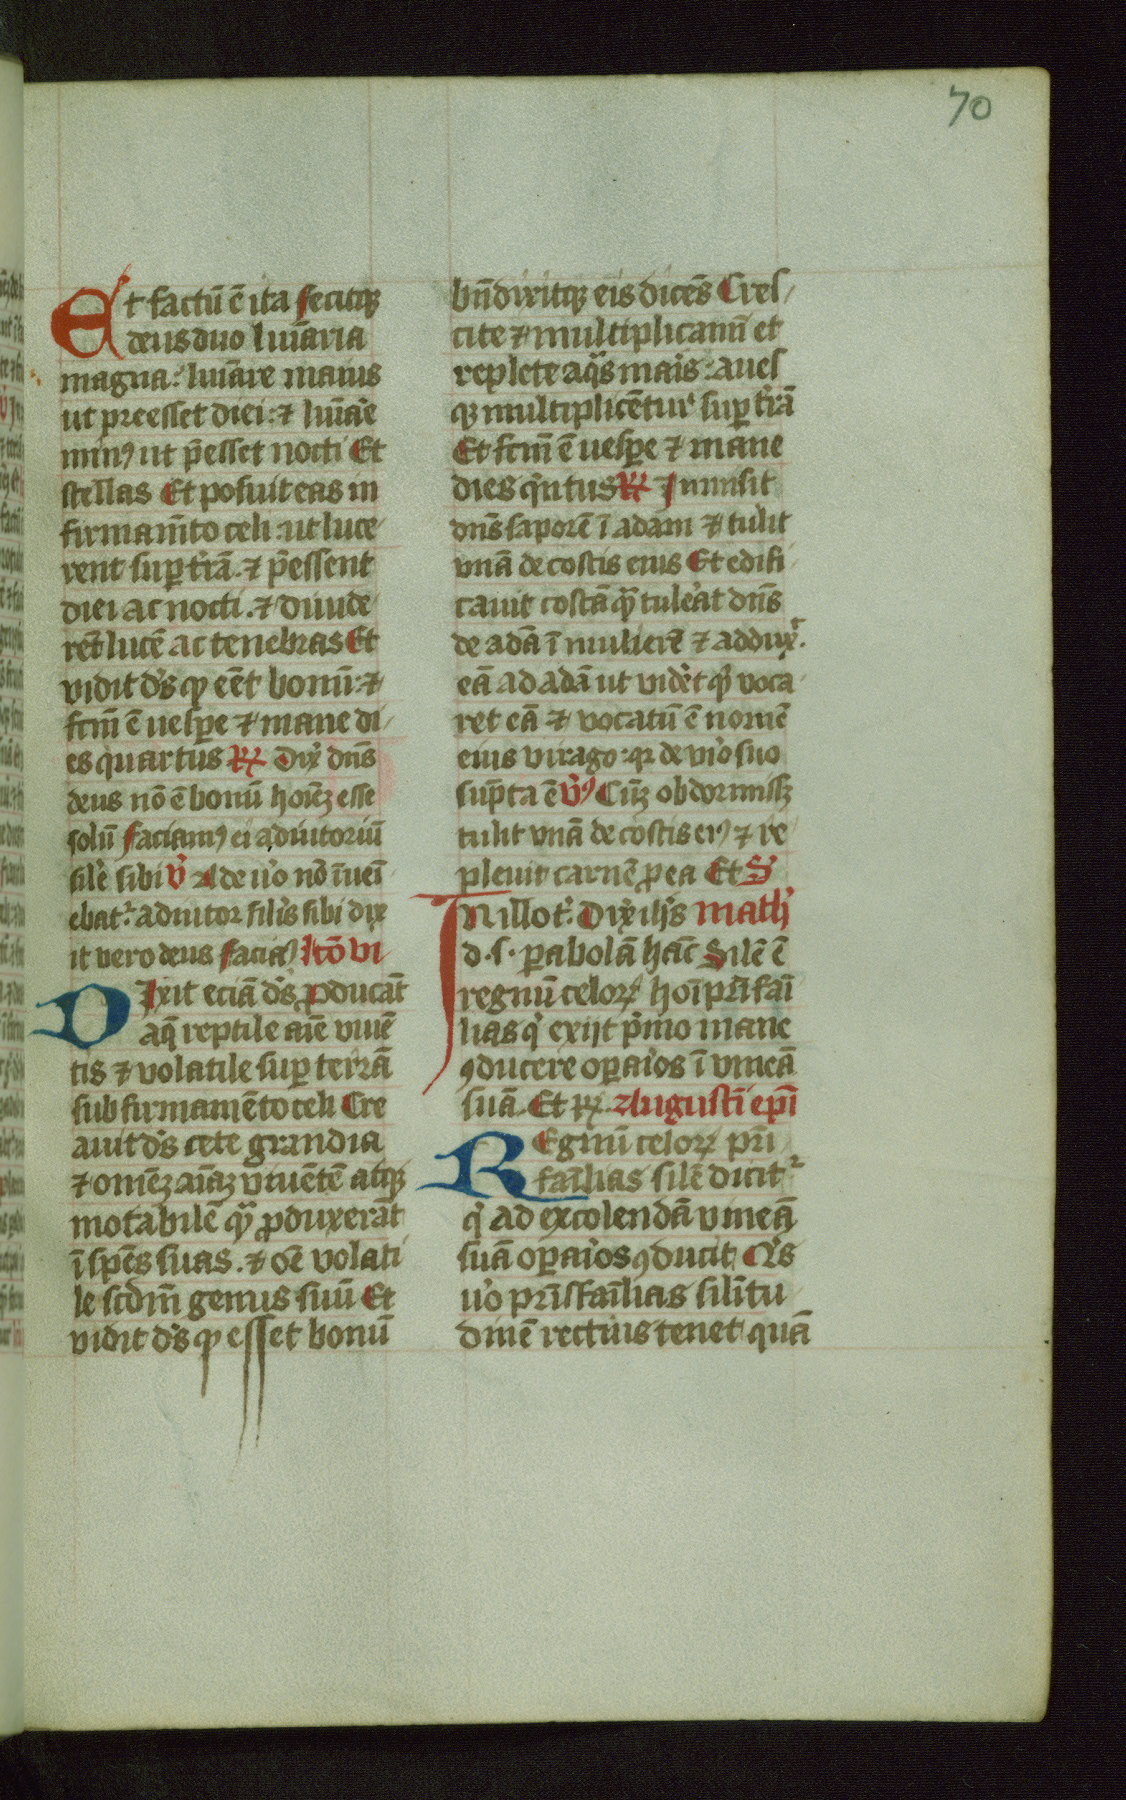 70
Et factū ē ita fecitqꝫ
deus duo lumīaria
magna: lumīare maius
ut preesset diei: ⁊ lumīare
minꝰ ut p̄esset nocti Et
stellas Et posuit eas in
firmam̄to celi: ut luce
rent suꝑ t̄rā. ⁊ p̄essent
diei ac nocti. ⁊ diuide
ret lucē ac tenebras Et
vidit d̄s ꝙ eēt bonū: ⁊
fc̄m ē uesꝑe ⁊ mane di
es quartus ℟ Dix̄ dn̄s
deus nō ē bonū hoīeꝫ esse
solū faciamꝰ ei adiutoriū
sil̄e sibi ℣ Ade u̓o nō īueī
ebat᷑ adiutor sil̄is sibi dix
it vero deus faciaꝰ lc̄o vi
Dixit eciā d̄s ꝓducāt
aq̄ reptile aīe viuē
tis ⁊ volatile suꝑ terrā
sub firmamēto celi Cre
auit d̄s cete grandia
⁊ omēꝫ aīaꝫ viuētē atqꝫ
motabilē qᷓ ꝓduxerāt
ī sp̄es suas. ⁊ oē volati
le scd̄m genus suū Et
vidit d̄s ꝙ esset bonū
bn̄dixitqꝫ eis dicēs Cres
cite ⁊ multiplicamī et
replete aqᷓs maris: aues
qꝫ multiplicētur suꝑ t̄rā
Et fc̄m ē uesꝑe ⁊ mane
dies qn̄tus ℟ Inmisit
dn̄s soporē ī adam ⁊ tulit
vnā de costis eius Et edifi
cauit costā qᷓ tulerat dn̄s
de adā ī mulierē ⁊ addux̄.
eā ad adā ut vidēt qͥ voca
ret eā ⁊ vocatū ē nomē
eius virago: qꝛ de viro suo
sup̄ta ē ℣ꝰ Cūꝫ obdormissꝫ
tulit vnā de costis eiꝰ ⁊ re
pleuit carnē ꝓ ea Et S
In illo t̄. Dix̄ ih̄s math̓
d. s. ꝑabolā hāc Silē ē
regnū celoꝝ hoī pr̄i faī
lias qͥ exijt p̄mo mane
ꝯducere oꝑarios ī vineā
suā. Et ℟. Augustī ep̄i
Regnū celoꝝ pr̄i
faīlias silē dicit᷑
qͥ ad excolendā vineā
suā oꝑarios ꝯducit Qͥs
u̓o pr̄isfaīlias silītu
dinē rectius tenet quā